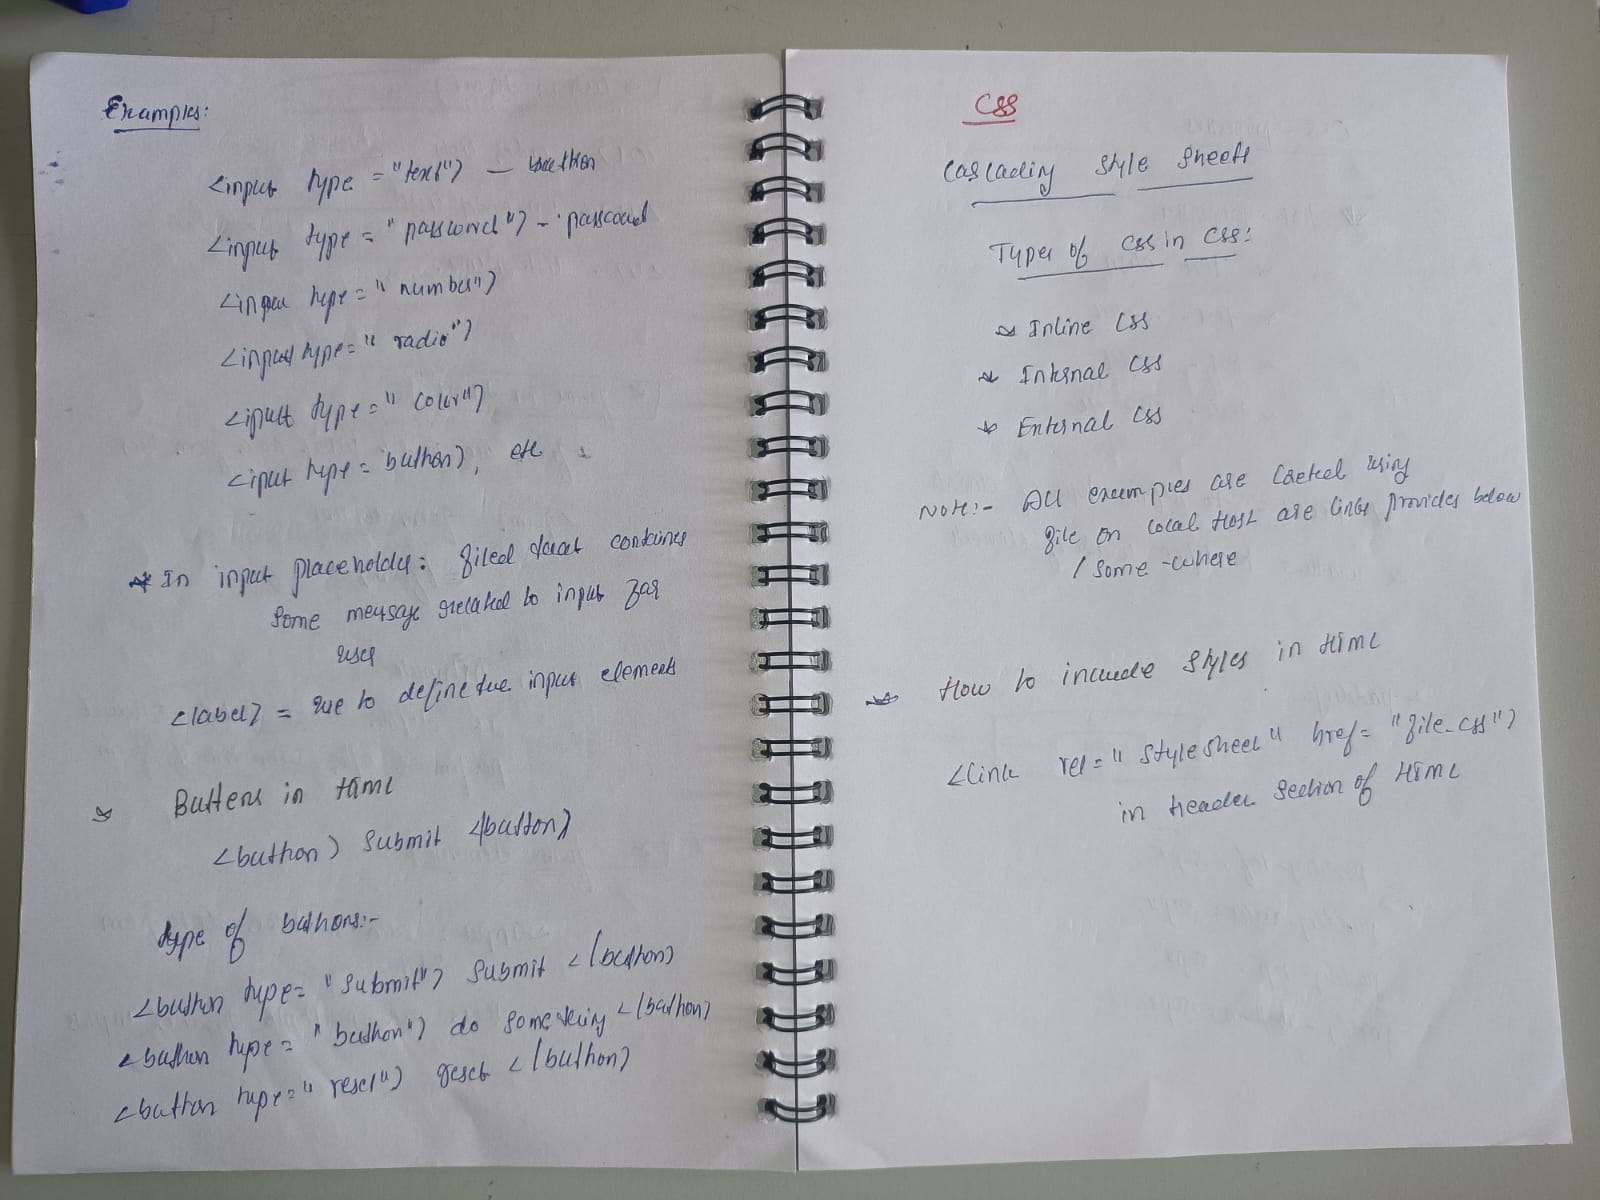 Examples:
<input type = "text"> –
<input type = "password"> –
<input type = "number">
<input type = "radio">
<input type = "color">
<input type = button>, etc
* In input placeholder: contains
some message related to input for
user
<label> = use to define the input elements
* Buttons in HTML
<button> submit </button>
Type of buttons:-
<button type = "submit"> submit </button>
<button type = "button"> do something </button>
<button type = "reset"> reset </button>
CSS
Cascading Style Sheets
Types of CSS in CSS:
* Inline CSS
* Internal CSS
* External CSS
Note:- All examples are using
file on local Host are links provides below
/ some-where
* How to include styles in HTML
<link rel = "stylesheet" href = "file.css">
in header section of HTML